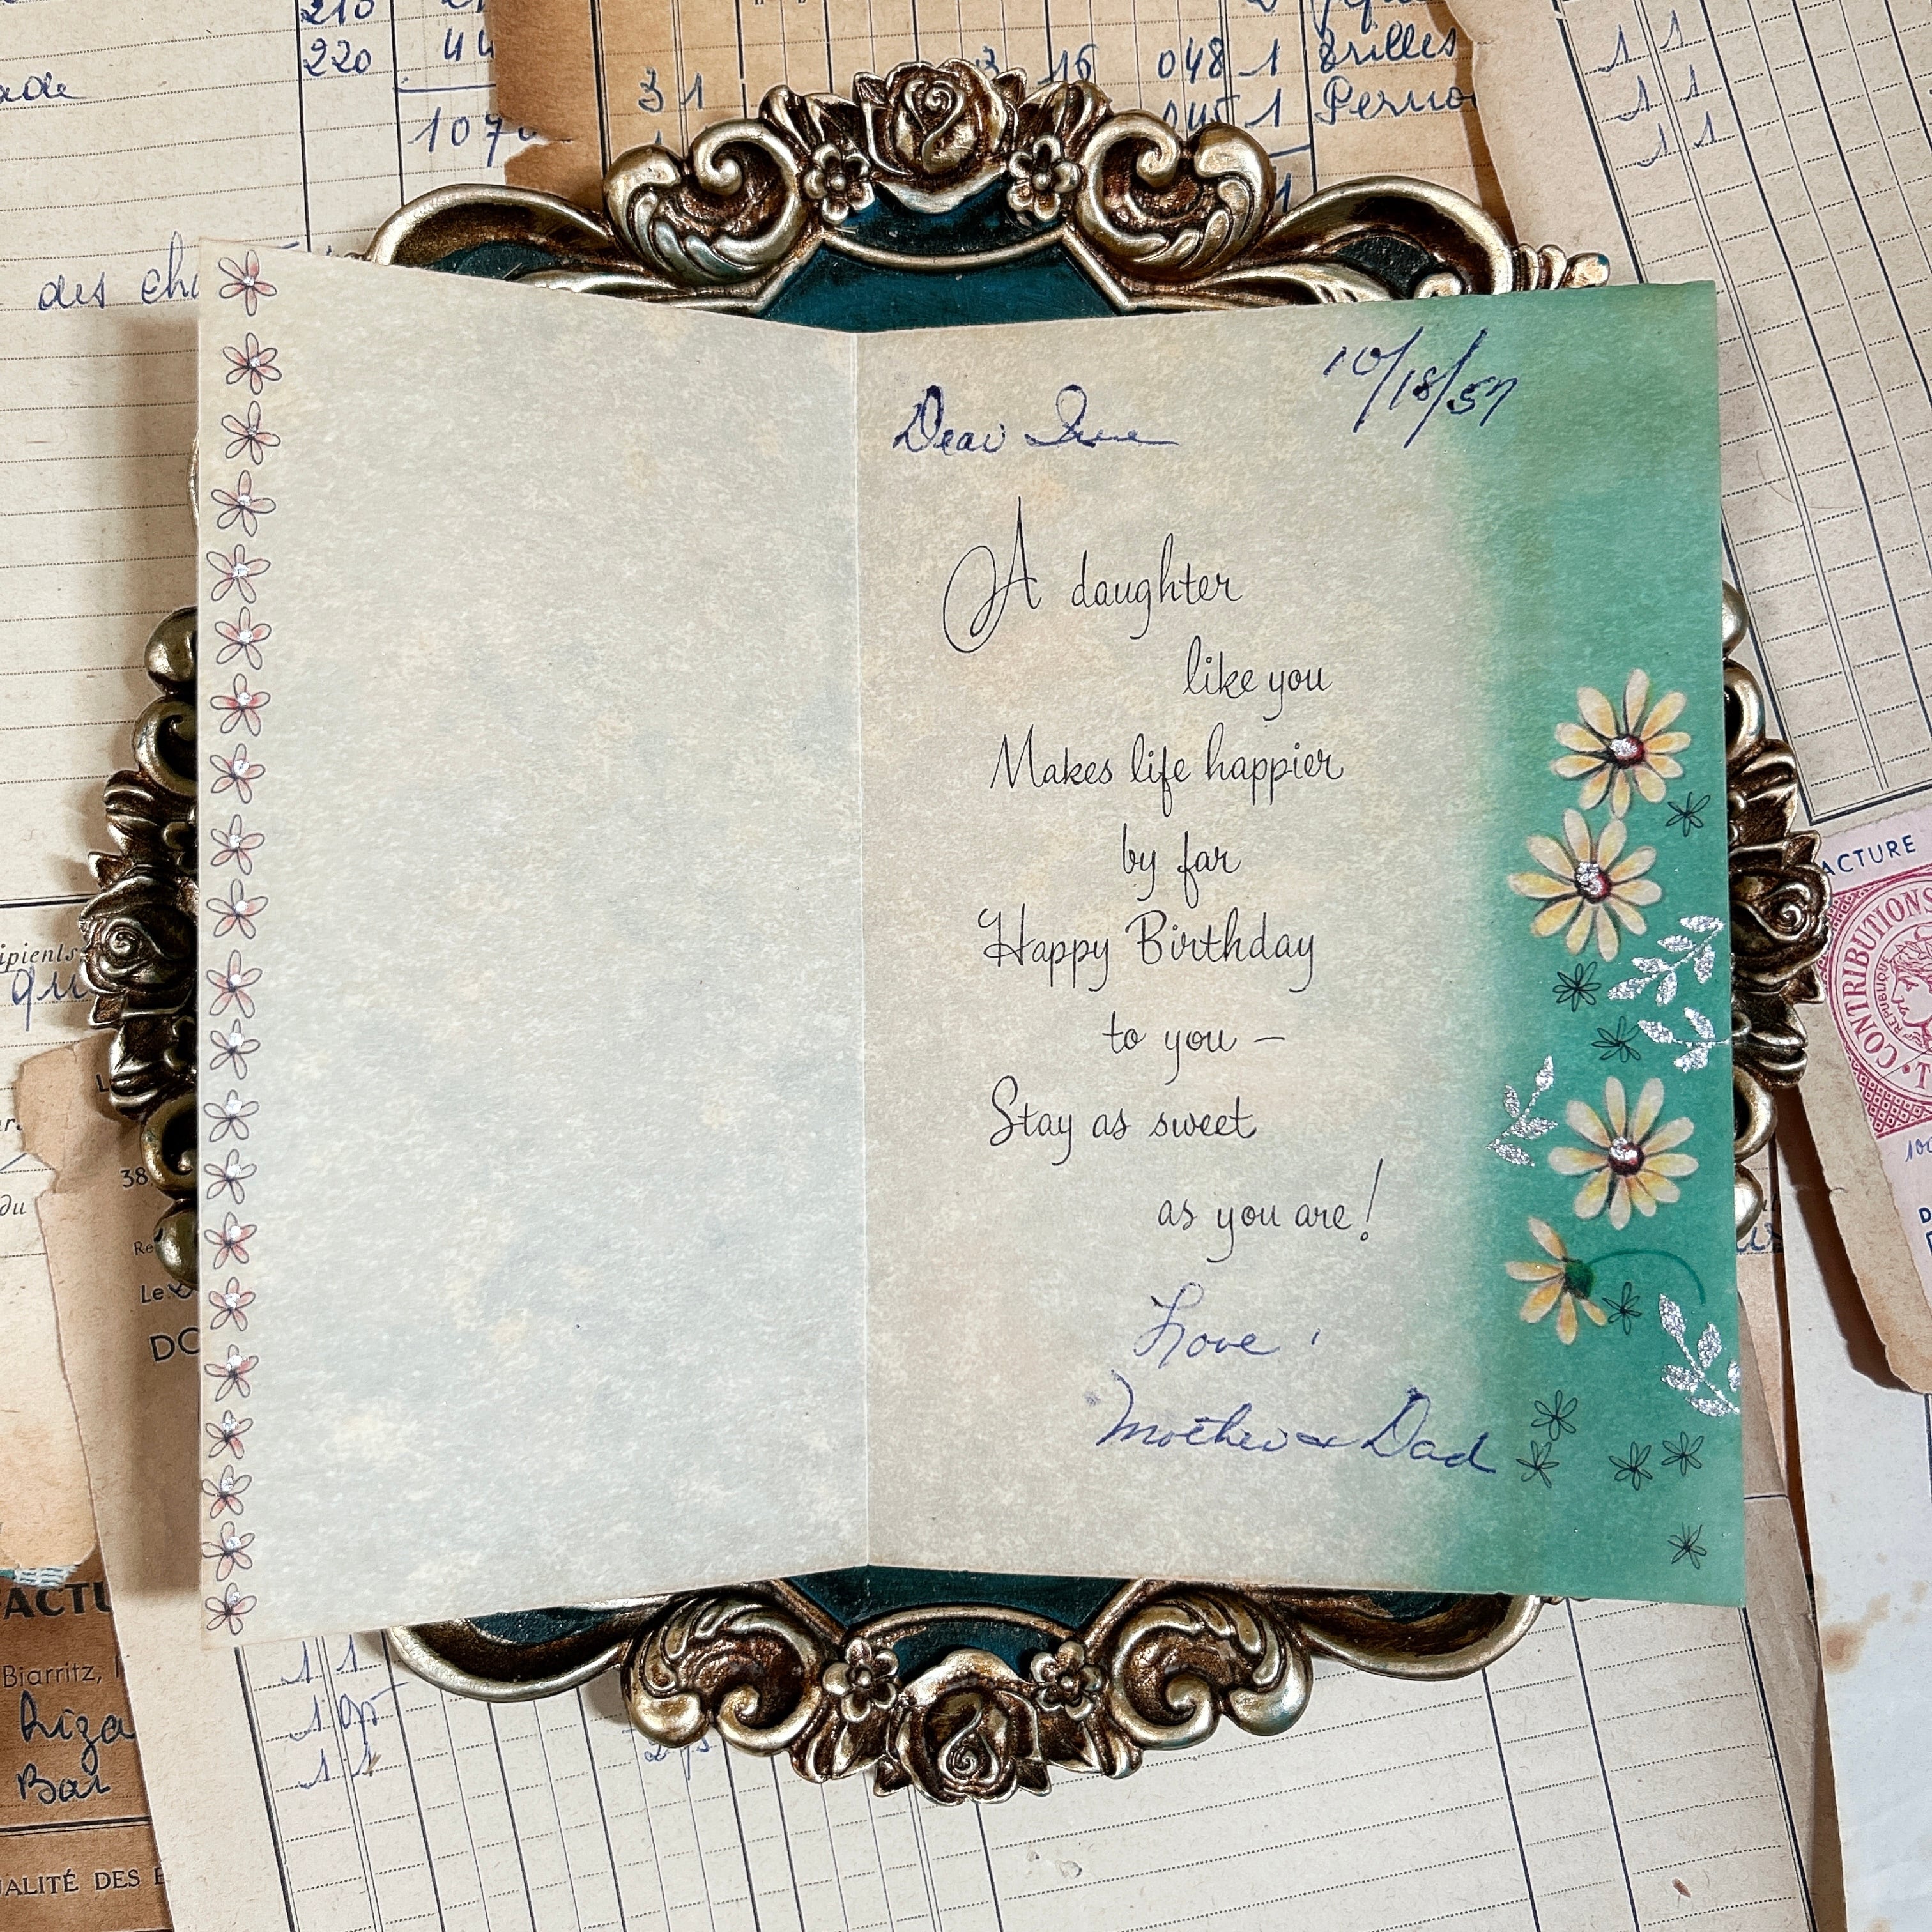 210
220
44
ade
107
31
3 16 048 1 Grilles
045 1 Perno
1 1
1 1
1 1
des ch
10/18/57
Dear
A daughter
like you
Makes life happier
by far
Happy Birthday
to you –
Stay as sweet
as you are!
Love,
Mother & Dad
ACTURE
CONTRIBUTIONS
REPUBLIQUE
ipients
qu
38,
du
Re
Le
DO
ACTU
Biarritz,
Liza
Bar
ALITÉ DES E
1 1
1 1